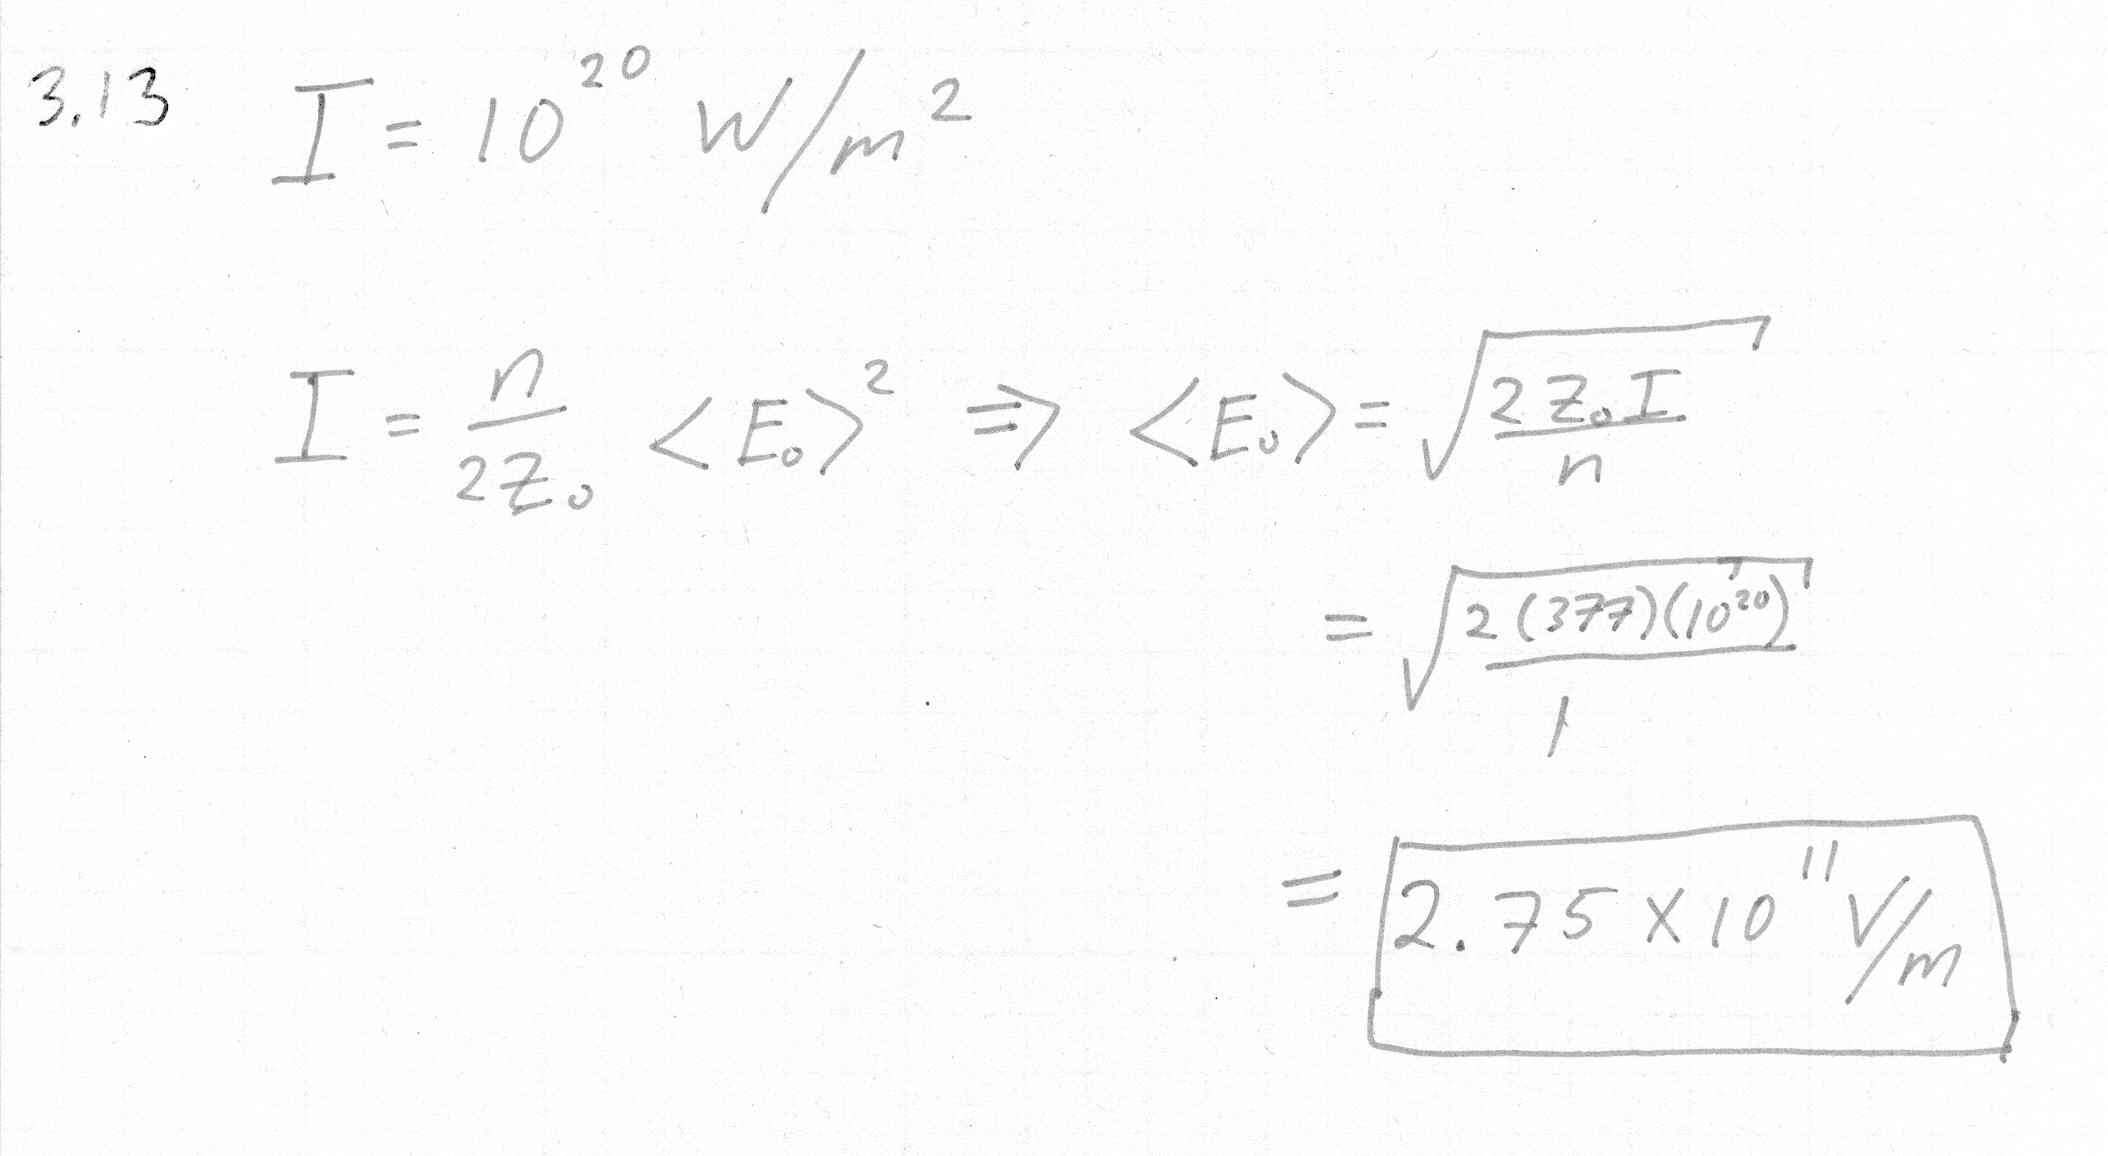 3.13 I = 10²⁰ W/m²
I = n/2Z₀ <E₀>² ⇒ <E₀> = √(2Z₀I/n)
= √(2(377)(10²⁰)/1)
= 2.75 X 10¹¹ V/m